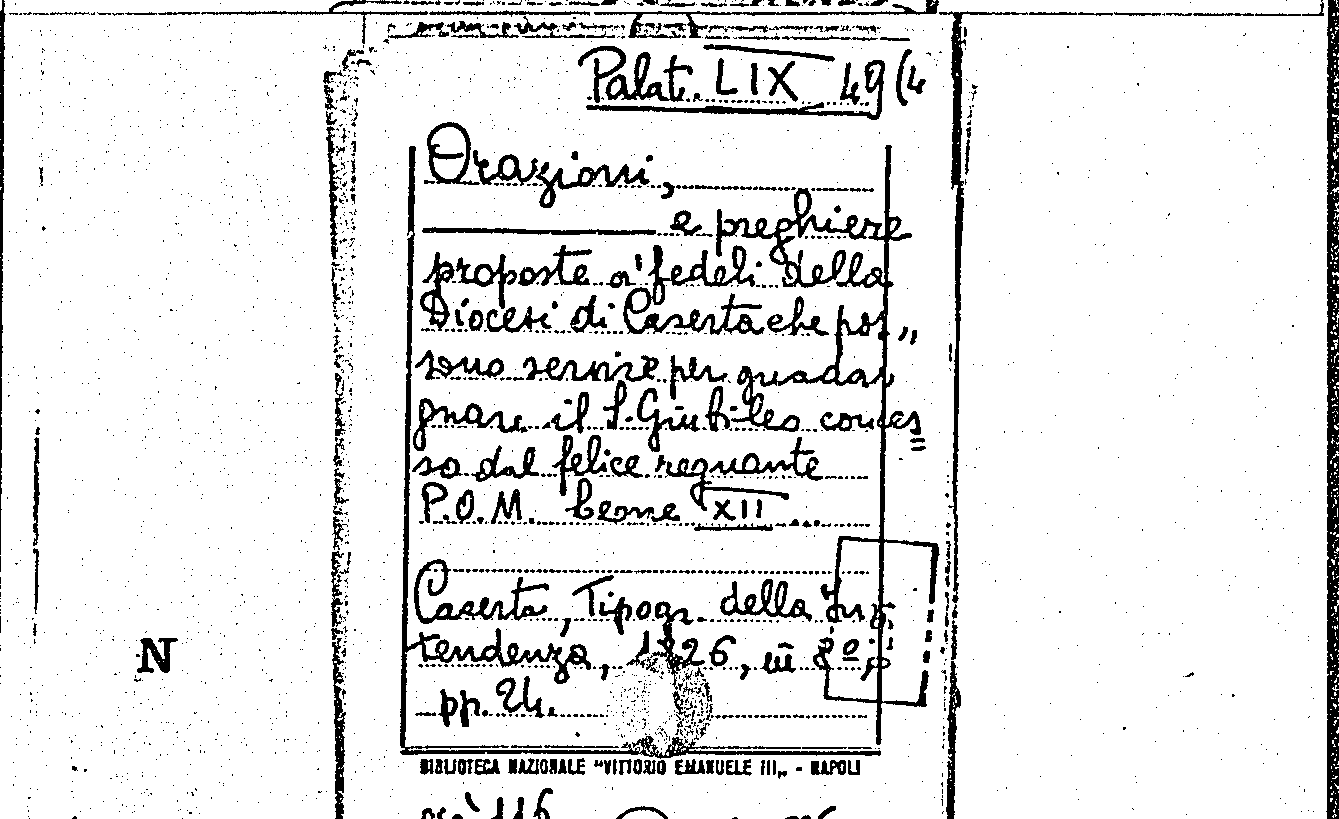 Palat. LIX 49 (4
Orazioni,
e preghiere
proposte a' fedeli della
Diocesi di Caserta che pos,,
sono servire per guada,
gnare il S. Giubileo conces
so dal felice regnante
P.O.M. Leone XII ...
Caserta, Tipogr. della In,
tendenza, 1826, in 8º;
pp. 24.
N
BIBLIOTECA NAZIONALE "VITTORIO EMANUELE III,, - NAPOLI